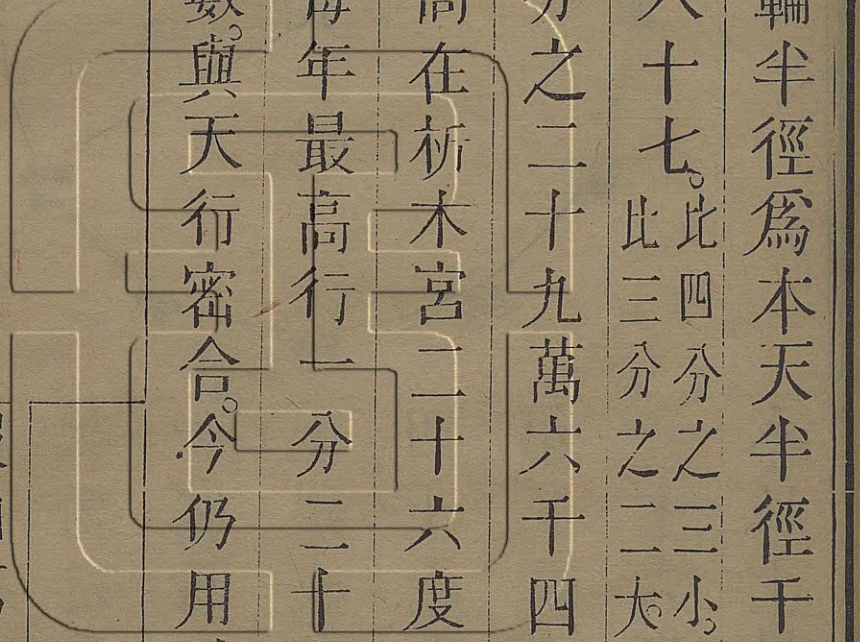 輪半徑爲本天半徑千
八十七。比四分之三小。
比三分之二大。
分之二十九萬六千四
高在析木宮二十六度
每年最高行一分二十
數。與天行密合。今仍用